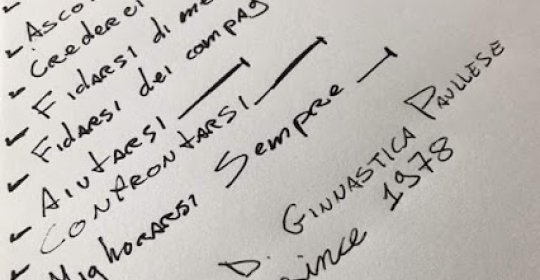 ✓ Asco
✓ Crederci
✓ Fidarsi di me
✓ Fidarsi dei compag
✓ Aiutarsi
✓ Confrontarsi
✓ Migliorarsi Sempre
D. Ginnastica Paullese
Since 1978